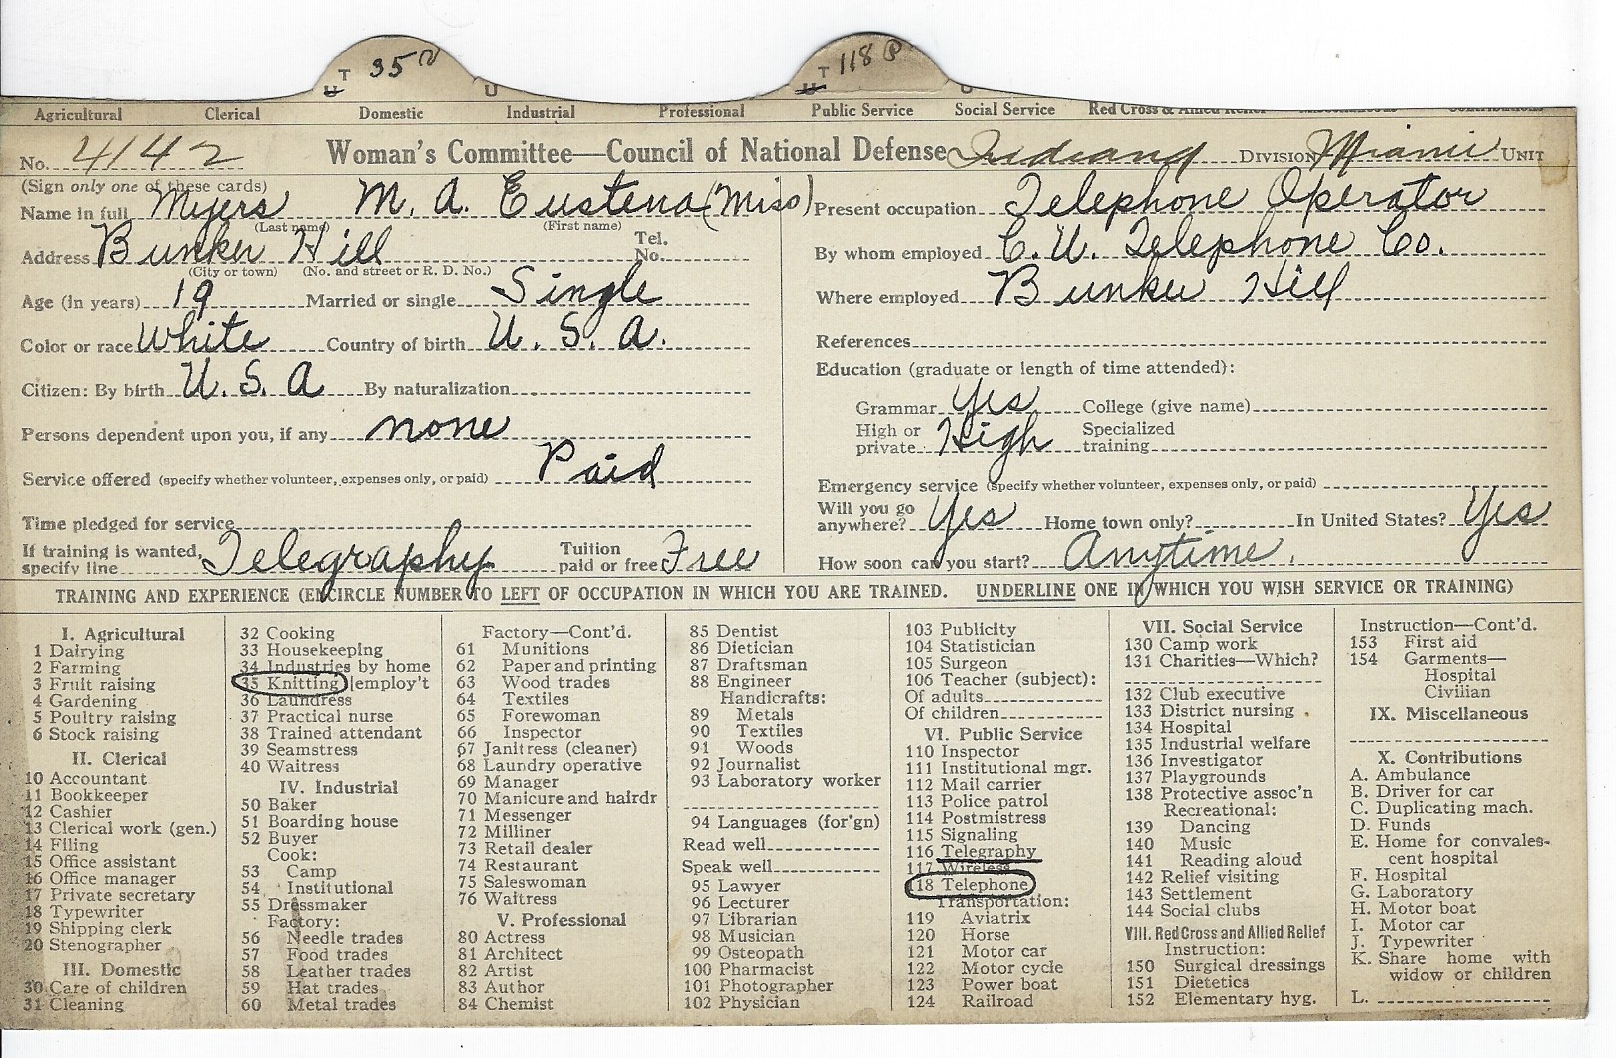 T 35
U U
T 118 P
U U
Agricultural Clerical Domestic Industrial Professional Public Service Social Service Red Cross & Allied Relief Miscellaneous Contributions
No. 4142 Woman's Committee—Council of National Defense Indiana DIVISION Miami UNIT
(Sign only one of these cards)
Name in full Myers M. A. Eustena (Miss)
(Last name) (First name)
Address Bunker Hill Tel. No.
(City or town) (No. and street or R. D. No.)
Age (in years) 19 Married or single Single
Color or race White Country of birth U. S. A.
Citizen: By birth U. S. A By naturalization
Persons dependent upon you, if any none
Service offered (specify whether volunteer, expenses only, or paid) Paid
Time pledged for service
If training is wanted, specify line Telegraphy Tuition paid or free Free
Present occupation Telephone Operator
By whom employed C. U. Telephone Co.
Where employed Bunker Hill
References
Education (graduate or length of time attended):
Grammar Yes College (give name)
High or private High Specialized training
Emergency service (specify whether volunteer, expenses only, or paid)
Will you go anywhere? Yes Home town only? In United States? Yes
How soon can you start? Anytime.
TRAINING AND EXPERIENCE (ENCIRCLE NUMBER TO LEFT OF OCCUPATION IN WHICH YOU ARE TRAINED. UNDERLINE ONE IN WHICH YOU WISH SERVICE OR TRAINING)
I. Agricultural
1 Dairying
2 Farming
3 Fruit raising
4 Gardening
5 Poultry raising
6 Stock raising
II. Clerical
10 Accountant
11 Bookkeeper
12 Cashier
13 Clerical work (gen.)
14 Filing
15 Office assistant
16 Office manager
17 Private secretary
18 Typewriter
19 Shipping clerk
20 Stenographer
III. Domestic
30 Care of children
31 Cleaning
32 Cooking
33 Housekeeping
34 Industries by home
35 Knitting [employ't
36 Laundress
37 Practical nurse
38 Trained attendant
39 Seamstress
40 Waitress
IV. Industrial
50 Baker
51 Boarding house
52 Buyer
Cook:
53 Camp
54 Institutional
55 Dressmaker
Factory:
56 Needle trades
57 Food trades
58 Leather trades
59 Hat trades
60 Metal trades
Factory—Cont'd.
61 Munitions
62 Paper and printing
63 Wood trades
64 Textiles
65 Forewoman
66 Inspector
67 Janitress (cleaner)
68 Laundry operative
69 Manager
70 Manicure and hairdr
71 Messenger
72 Milliner
73 Retail dealer
74 Restaurant
75 Saleswoman
76 Waitress
V. Professional
80 Actress
81 Architect
82 Artist
83 Author
84 Chemist
85 Dentist
86 Dietician
87 Draftsman
88 Engineer
Handicrafts:
89 Metals
90 Textiles
91 Woods
92 Journalist
93 Laboratory worker
94 Languages (for'gn)
Read well
Speak well
95 Lawyer
96 Lecturer
97 Librarian
98 Musician
99 Osteopath
100 Pharmacist
101 Photographer
102 Physician
103 Publicity
104 Statistician
105 Surgeon
106 Teacher (subject):
Of adults
Of children
VI. Public Service
110 Inspector
111 Institutional mgr.
112 Mail carrier
113 Police patrol
114 Postmistress
115 Signaling
116 Telegraphy
117 Wireless
118 Telephone
Transportation:
119 Aviatrix
120 Horse
121 Motor car
122 Motor cycle
123 Power boat
124 Railroad
VII. Social Service
130 Camp work
131 Charities—Which?
132 Club executive
133 District nursing
134 Hospital
135 Industrial welfare
136 Investigator
137 Playgrounds
138 Protective assoc'n
Recreational:
139 Dancing
140 Music
141 Reading aloud
142 Relief visiting
143 Settlement
144 Social clubs
VIII. Red Cross and Allied Relief
Instruction:
150 Surgical dressings
151 Dietetics
152 Elementary hyg.
Instruction—Cont'd.
153 First aid
154 Garments—
Hospital
Civilian
IX. Miscellaneous
X. Contributions
A. Ambulance
B. Driver for car
C. Duplicating mach.
D. Funds
E. Home for convales-
cent hospital
F. Hospital
G. Laboratory
H. Motor boat
I. Motor car
J. Typewriter
K. Share home with
widow or children
L.